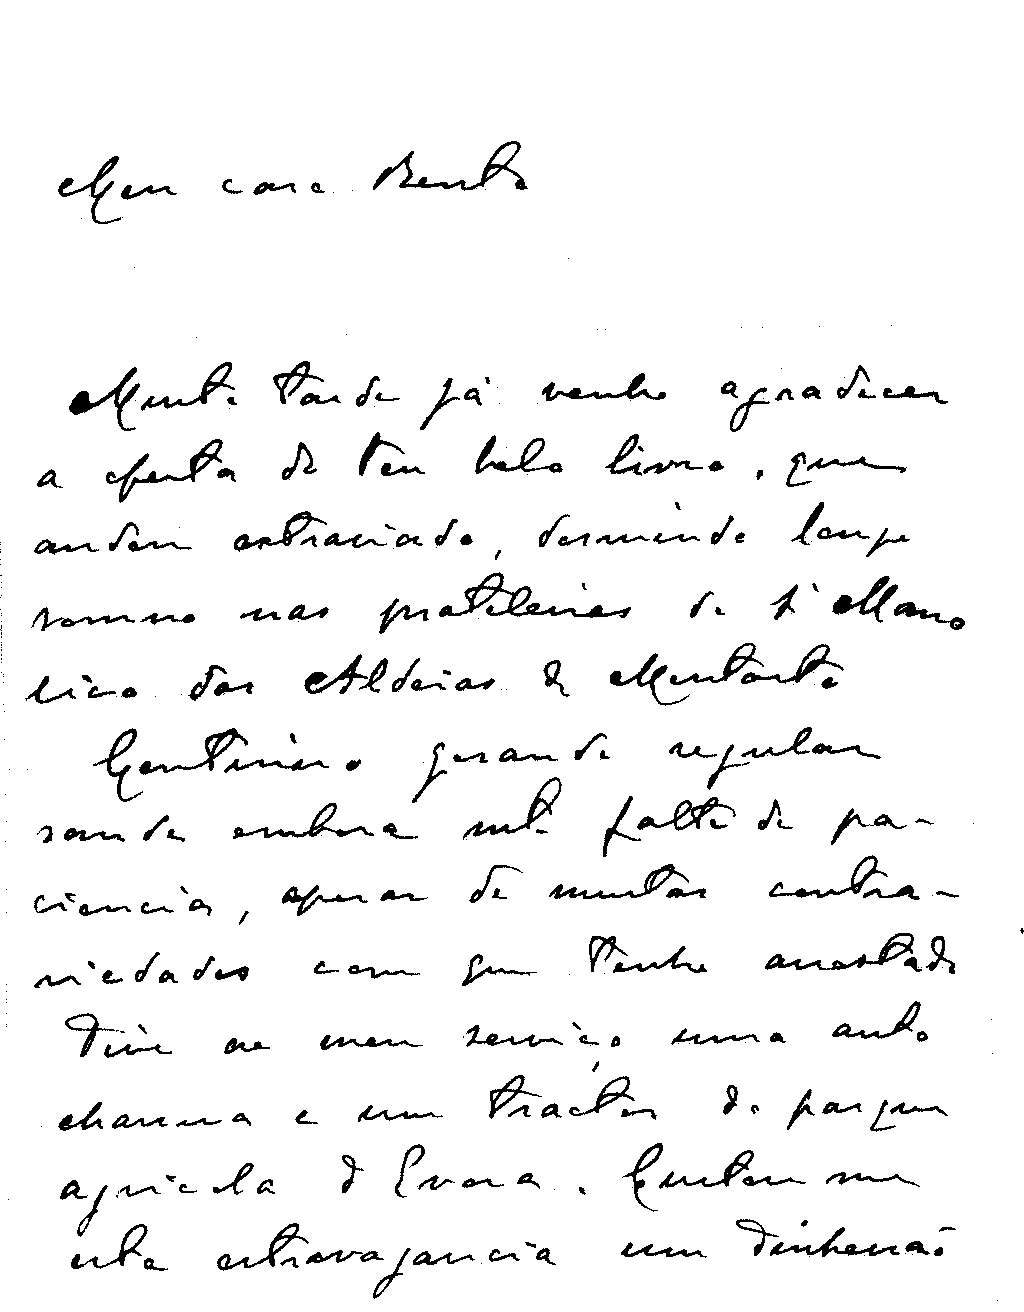 Meu caro Bento
Muito tarde já venho agradecer
a oferta do teu belo livro, que
andou extraviado, dormindo longo
somno nas prateleiras da
das Aldeias de Montoito
Continuo gosando regular
saude embora mta falta de pa-
ciencia, apesar de muitas contra-
riedades com que tenho arrostado
Tive ao meu serviço uma auto
charrua e um tractor do parque
agricola d'Evora. Custou me
esta extravagancia um dinheirão